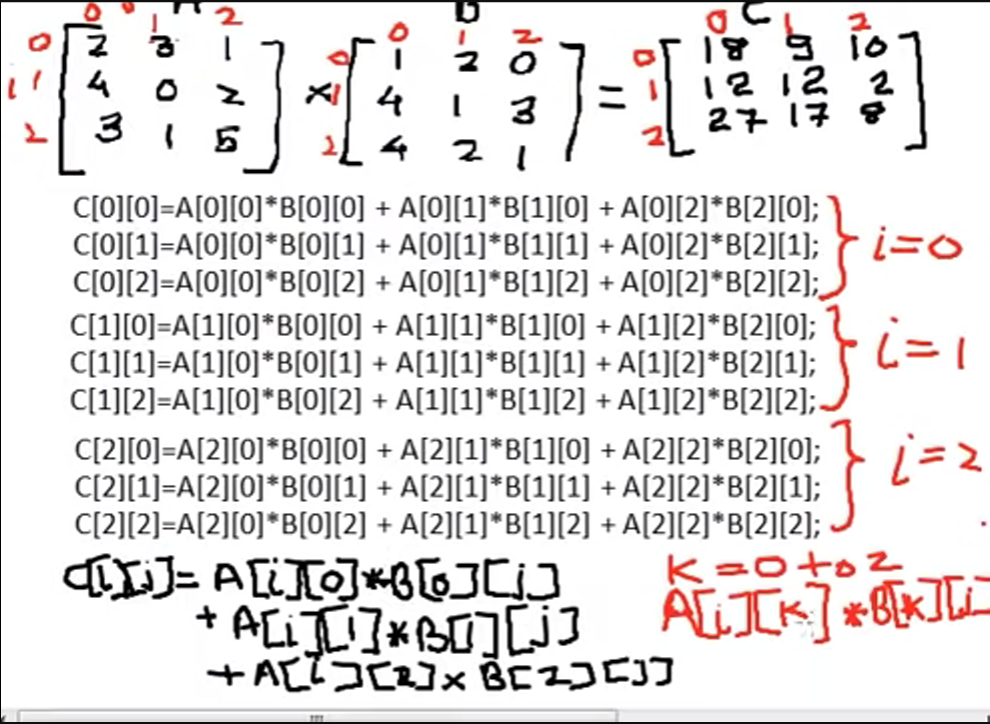 A B C
0 0 1 2 0 1 2 0 1 2
0 [2 3 1] 0 [1 2 0] 0 [18 9 10]
1 1 [4 0 2] × 1 [4 1 3] = 1 [12 12 2]
2 [3 1 5] 2 [4 2 1] 2 [27 17 8]
C[0][0]=A[0][0]*B[0][0] + A[0][1]*B[1][0] + A[0][2]*B[2][0];
C[0][1]=A[0][0]*B[0][1] + A[0][1]*B[1][1] + A[0][2]*B[2][1]; } i=0
C[0][2]=A[0][0]*B[0][2] + A[0][1]*B[1][2] + A[0][2]*B[2][2];
C[1][0]=A[1][0]*B[0][0] + A[1][1]*B[1][0] + A[1][2]*B[2][0];
C[1][1]=A[1][0]*B[0][1] + A[1][1]*B[1][1] + A[1][2]*B[2][1]; } i=1
C[1][2]=A[1][0]*B[0][2] + A[1][1]*B[1][2] + A[1][2]*B[2][2];
C[2][0]=A[2][0]*B[0][0] + A[2][1]*B[1][0] + A[2][2]*B[2][0]; } i=2
C[2][1]=A[2][0]*B[0][1] + A[2][1]*B[1][1] + A[2][2]*B[2][1];
C[2][2]=A[2][0]*B[0][2] + A[2][1]*B[1][2] + A[2][2]*B[2][2];
C[i][j]= A[i][0]*B[0][j]
+ A[i][1]*B[1][j]
+A[i][2]×B[2][j]
K=0 to 2
A[i][K]*B[K][j